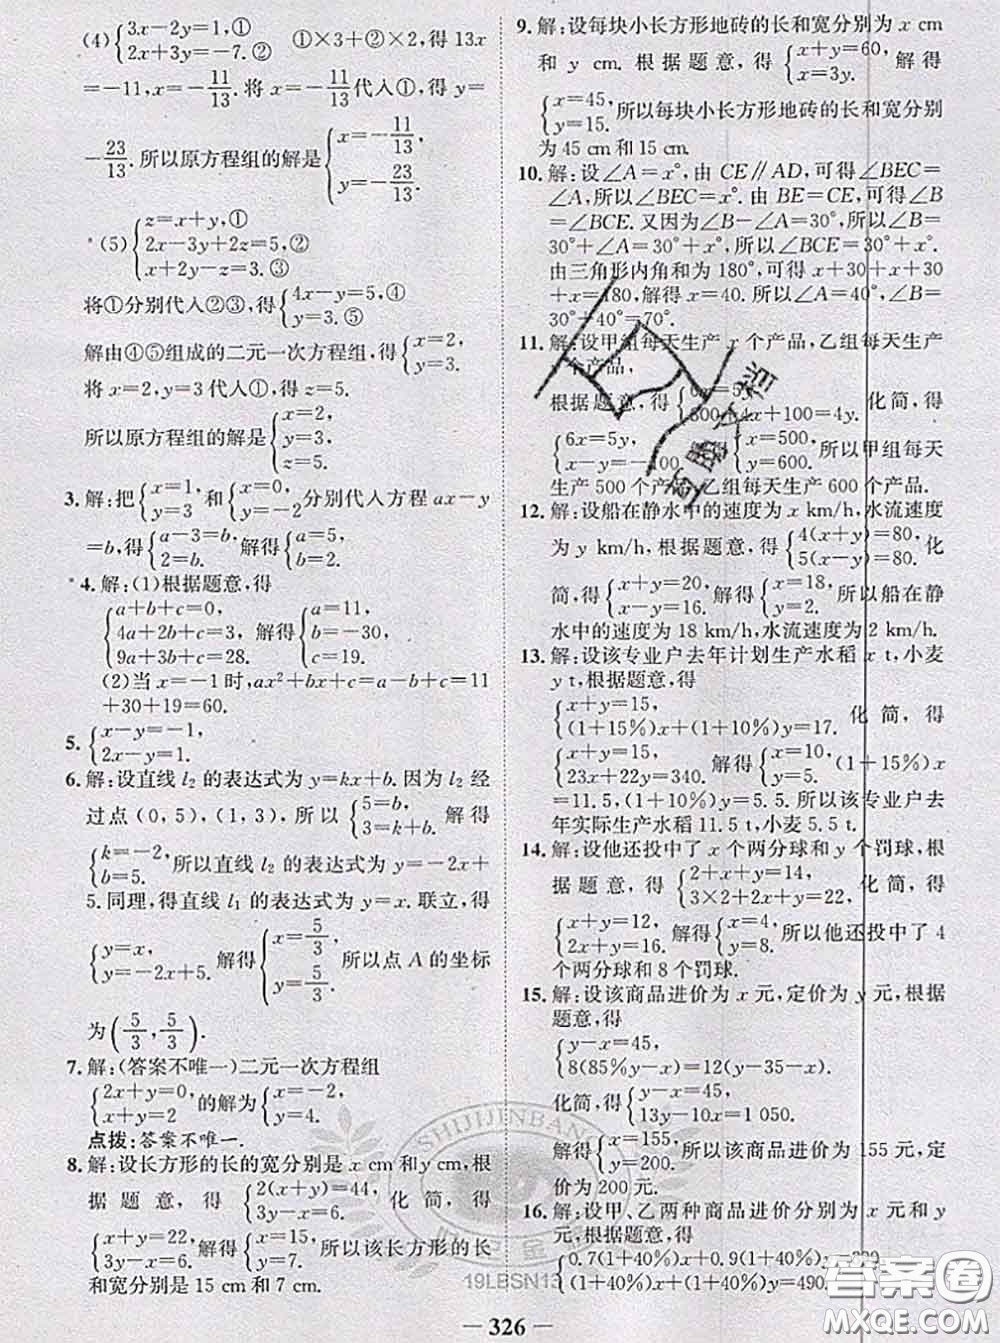 (4) {3x-2y=1,① 2x+3y=-7.② ①×3+②×2,得 13x
=-11,x=-11/13.将 x=-11/13代入①,得 y=
-23/13.所以原方程组的解是{x=-11/13, y=-23/13.
(5) {z=x+y,① 2x-3y+2z=5,② x+2y-z=3.③
将①分别代入②③,得{4x-y=5,④ y=3.⑤
解由④⑤组成的二元一次方程组,得{x=2, y=3.
将 x=2,y=3代入①,得 z=5.
所以原方程组的解是{x=2, y=3, z=5.
3. 解:把{x=1, y=3 和{x=0, y=-2分别代入方程 ax-y
=b,得{a-3=b, 2=b. 解得{a=5, b=2.
4. 解:(1)根据题意,得
{a+b+c=0, 4a+2b+c=3, 9a+3b+c=28. 解得{a=11, b=-30, c=19.
(2)当 x=-1时,ax²+bx+c=a-b+c=11
+30+19=60.
5. {x-y=-1, 2x-y=1.
6. 解:设直线 l₂ 的表达式为 y=kx+b. 因为 l₂ 经
过点(0,5),(1,3),所以{5=b, 3=k+b. 解得
{k=-2, b=5. 所以直线 l₂ 的表达式为 y=-2x+
5.同理,得直线 l₁ 的表达式为 y=x.联立,得
{y=x, y=-2x+5. 解得{x=5/3, y=5/3. 所以点 A 的坐标
为(5/3,5/3).
7. 解:(答案不唯一)二元一次方程组
{2x+y=0, x+y=2 的解为{x=-2, y=4.
点拨:答案不唯一.
8. 解:设长方形的长的宽分别是 x cm 和 y cm,根
据题意,得{2(x+y)=44, 3y-x=6. 化简,得
{x+y=22, 3y-x=6. 解得{x=15, y=7. 所以该长方形的长
和宽分别是 15 cm 和 7 cm.
9. 解:设每块小长方形地砖的长和宽分别为 x cm
和 y cm. 根据题意,得{x+y=60, x=3y. 解得
{x=45, y=15. 所以每块小长方形地砖的长和宽分别
为 45 cm 和 15 cm.
10. 解:设∠A=x°,由 CE∥AD,可得∠BEC=
∠A,所以∠BEC=x°. 由 BE=CE,可得∠B
=∠BCE. 又因为∠B-∠A=30°,所以∠B=
30°+∠A=30°+x°,所以∠BCE=30°+x°.
由三角形内角和为 180°,可得 x+30+x+30
+x=180,解得 x=40. 所以∠A=40°,∠B=
30°+40°=70°.
11. 解:设甲组每天生产 x 个产品,乙组每天生产
个产品,
根据题意,得 300+4x+100=4y. 化简,得
{6x=5y, 解得{x=500, y=600. 所以甲组每天
生产 500 个产品,乙组每天生产 600 个产品.
12. 解:设船在静水中的速度为 x km/h,水流速度
为 y km/h,根据题意,得{4(x+y)=80, 5(x-y)=80. 化
简,得{x+y=20, x-y=16. 解得{x=18, y=2. 所以船在静
水中的速度为 18 km/h,水流速度为 2 km/h.
13. 解:设该专业户去年计划生产水稻 x t,小麦
y t,根据题意,得
{x+y=15, (1+15%)x+(1+10%)y=17. 化简,得
{x+y=15, 23x+22y=340. 解得{x=10, y=5. (1+15%)x
=11.5,(1+10%)y=5.5. 所以该专业户去
年实际生产水稻 11.5 t,小麦 5.5 t.
14. 解:设他还投中了 x 个两分球和 y 个罚球,根
据题意,得{2+x+y=14, 3×2+2x+y=22. 化简,得
{x+y=12, 2x+y=16. 解得{x=4, y=8. 所以他还投中了 4
个两分球和 8 个罚球.
15. 解:设该商品进价为 x 元,定价为 y 元,根据
题意,得
{y-x=45, 8(85%y-x)=12(y-35-x).
化简,得{y-x=45, 13y-10x=1 050.
解得{x=155, y=200. 所以该商品进价为 155 元,定
价为 200 元.
16. 解:设甲、乙两种商品进价分别为 x 元和 y
元,根据题意,得
{0.7(1+40%)x+0.9(1+40%)y=
(1+40%)x+(1+40%)y=490.
SHIJIJINBANG
19LBSN13
答案圈
MXQE.COM
— 326 —